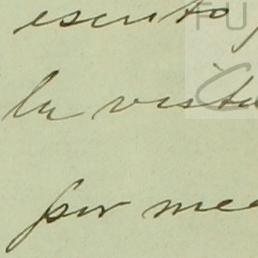 escrito
la vista
por me